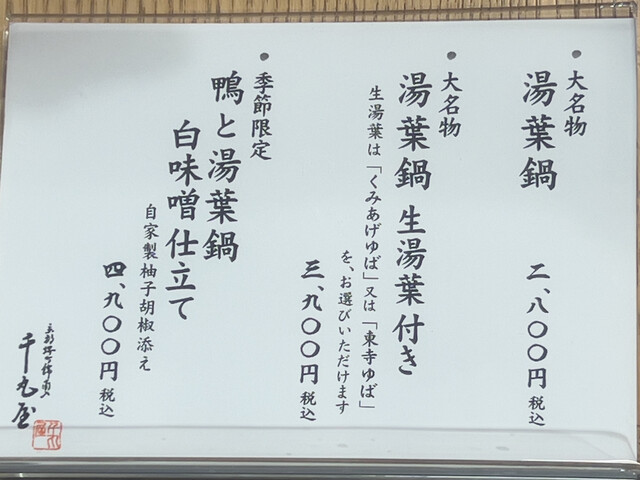 大名物
湯葉鍋
二、八〇〇円 税込
大名物
湯葉鍋 生湯葉付き
生湯葉は「くみあげゆば」又は「東寺ゆば」
を、お選びいただけます
三、九〇〇円 税込
季節限定
鴨と湯葉鍋
白味噌仕立て
自家製柚子胡椒添え
四、九〇〇円 税込
千丸屋